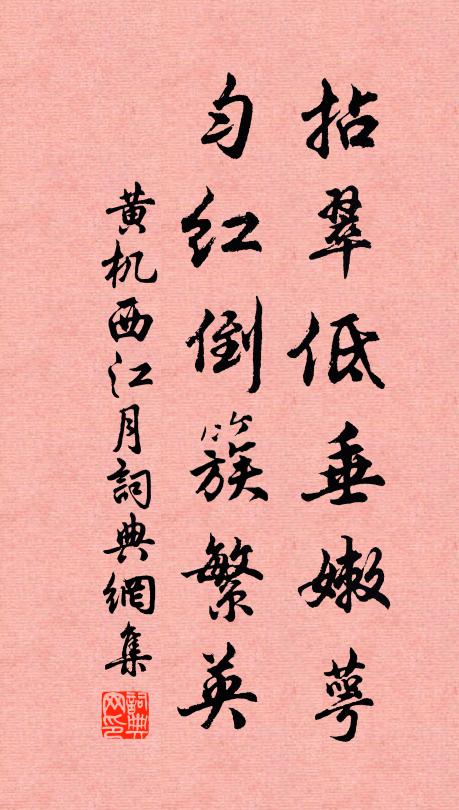 拈翠低垂嫩萼
匀红倒簇繁英
黄机西江月詞典網集
詞典网印